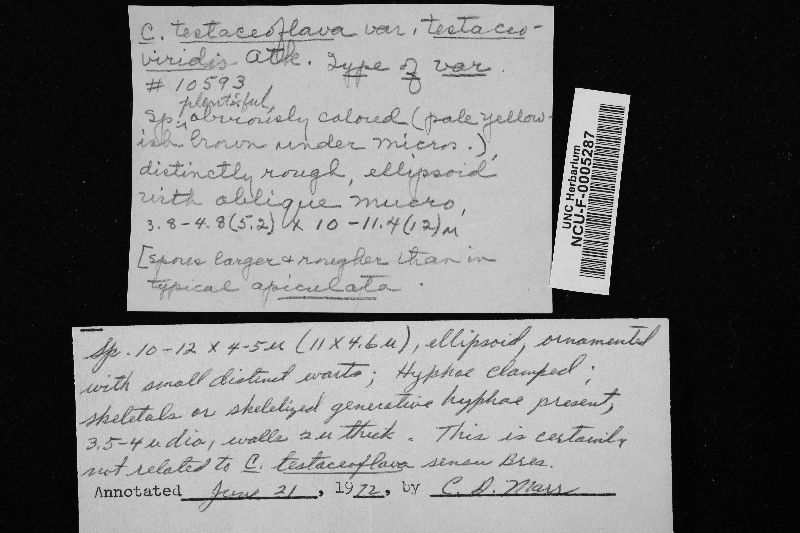 C. testaceoflava var. testaceo-
viridis Atk. Type of var.
# 10593
plentiful,
Sp. obviously colored (pale yellow-
ish brown under micros.),
distinctly rough, ellipsoid
with oblique mucro,
3.8-4.8(5.2) x 10-11.4(12)µ
[spores larger & rougher than in
typical apiculata.
UNC Herbarium
NCU-F-0005287
Sp. 10-12 x 4-5µ (11 x 4.6µ), ellipsoid, ornamented
with small distinct warts; Hyphae clamped;
skeletals or skeletized generative hyphae present,
3.5-4µ dia, walls 2µ thick. This is certainly
not related to C. testaceoflava sensu Bres.
Annotated June 21, 1972, by C. D. Marr